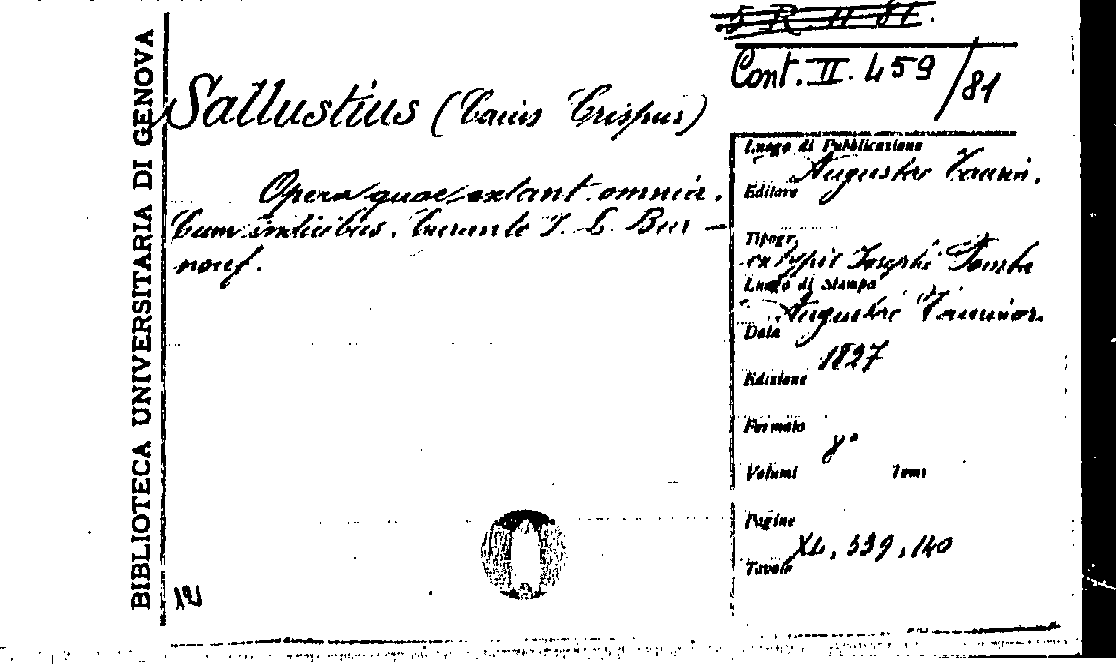 5 R. 11 81.
Cont. II. 459 /81
BIBLIOTECA UNIVERSITARIA DI GENOVA
Sallustius (Caius Crispus)
Opera quae extant omnia.
Cum indicibus. Curante J. L. Bur-
nouf.
Luogo di Pubblicazione
Augustae Taurin.
Editore
Tipogr.
ex typis Josephi Pomba
Luogo di Stampa
Augustae Taurinor.
Data
1827
Edizione
Formato
8°
Volumi Tomi
Pagine
XL, 339, 140
Tavole